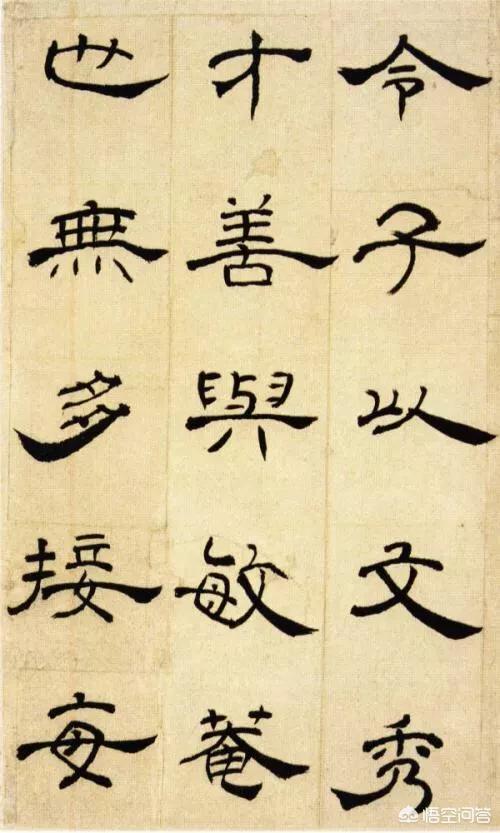 令子以文秀
才善與敏菴
也無多接每
悟空问答